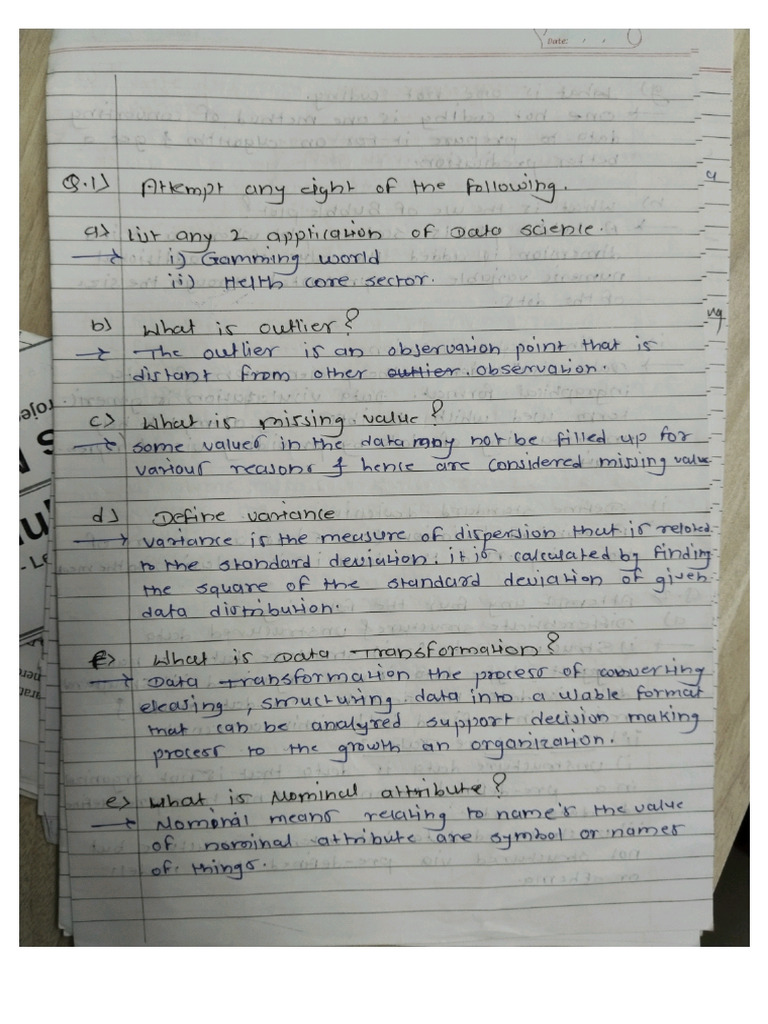 Date:
Q.1) Attempt any eight of the following.
a) List any 2 application of Data science.
→ i) Gamming world
ii) Helth care sector.
b) What is outlier?
→ The outlier is an observation point that is
distant from other outlier. observation.
c) What is missing value?
→ some values in the data may not be filled up for
various reasons & hence are considered missing value
d) Define variance
→ variance is the measure of dispersion that is related
to the standard deviation. it is calculated by finding
the square of the standard deviation of given
data distribution.
f) What is Data Transformation?
→ Data transformation the process of converting
eleasing, structuring data into a usable format
that can be analyzed support decision making
process to the growth an organization.
e) What is Nominal attribute?
→ Nominal means relating to name's the value
of nominal attribute are symbol or names
of things.